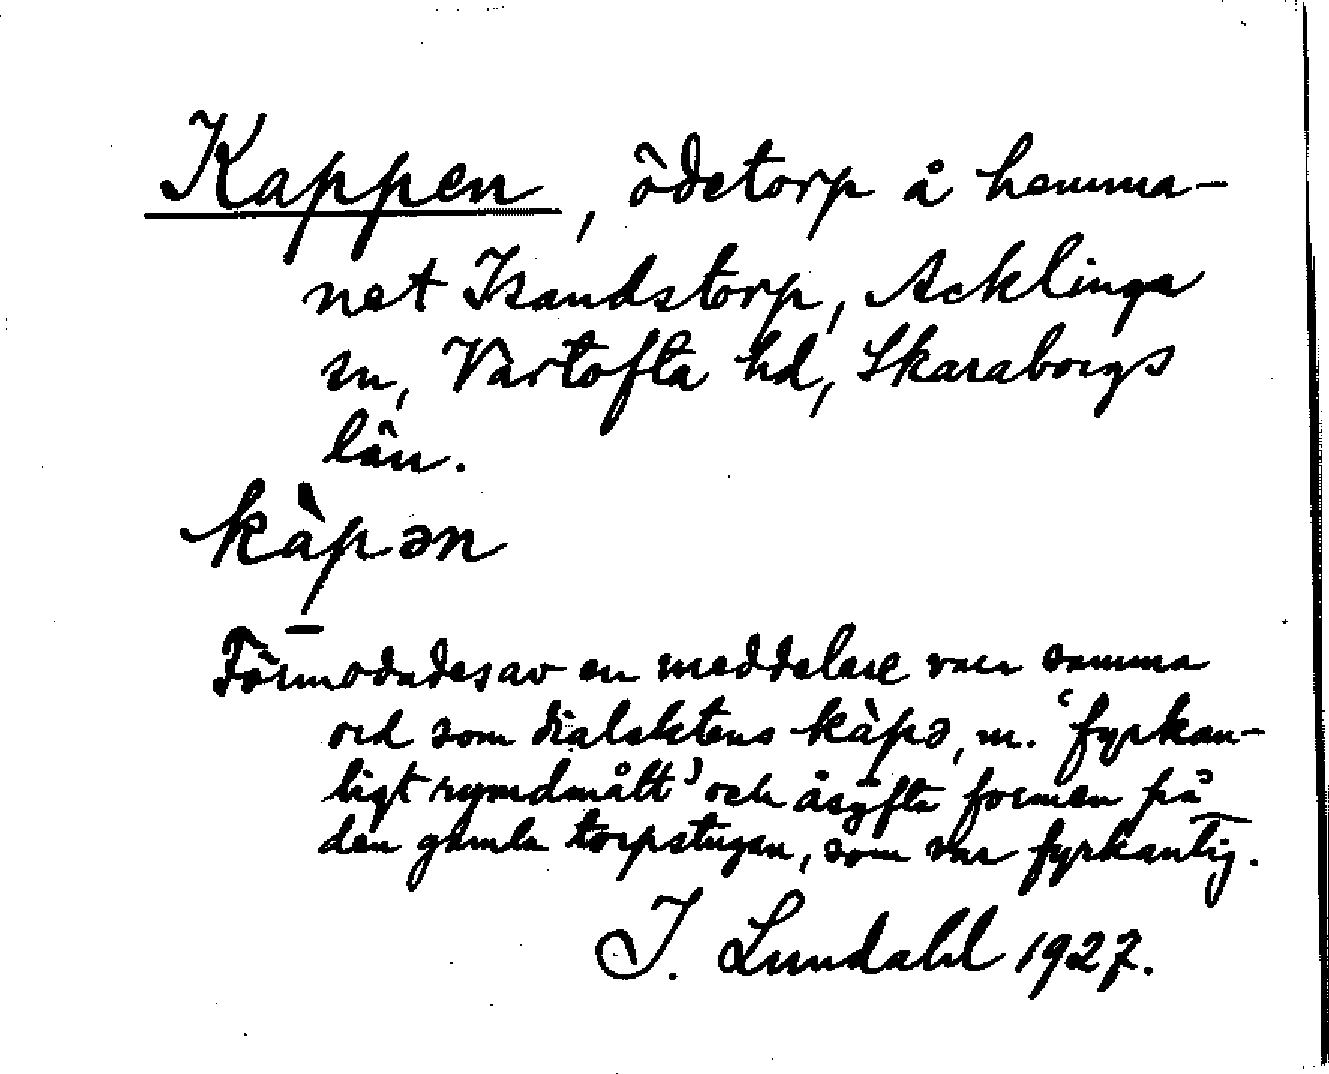 Kappen, ödetorp å hemma-
net Isandstorp, Acklinga
sn, Vartofta hd, Skaraborgs
län.
kàpən
Förmodades av en meddelare vara samma
ord som dialektens kàpə, m. ‘fyrkan-
tigt rymdmått’ och åsyfta formen på
den gamla torpstugan, som var fyrkantig.
I. Lundahl 1927.